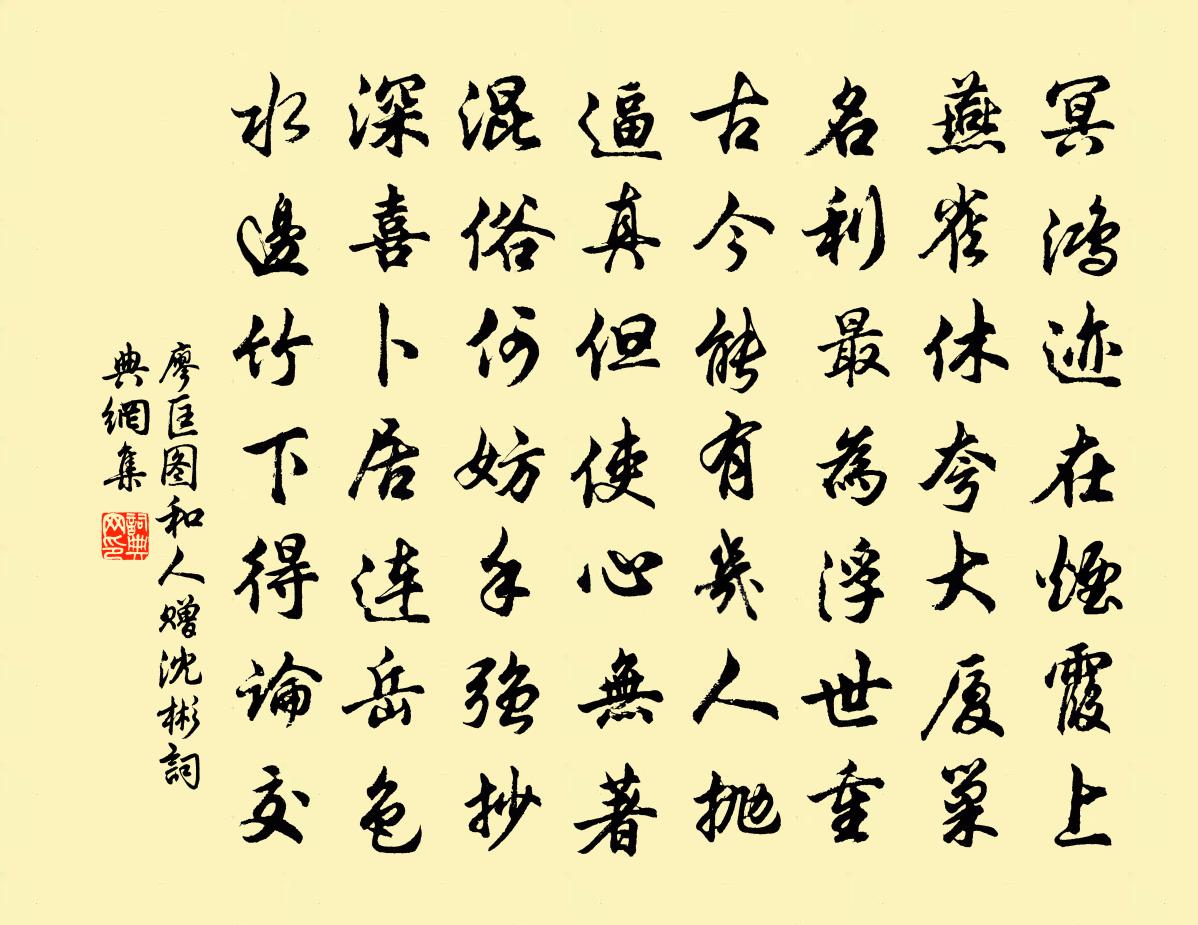 冥鴻迹在煙霞上
燕雀休夸大厦巢
名利最為浮世重
古今能有幾人抛
逼真但使心無著
混俗何妨手強抄
深喜卜居連岳色
水邊竹下得論交
廖匡图和人赠沈彬詞
典網集
詞典
网印